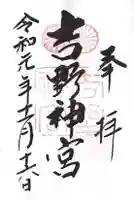 奉拝
吉野神宮
令和元年十二月十六日